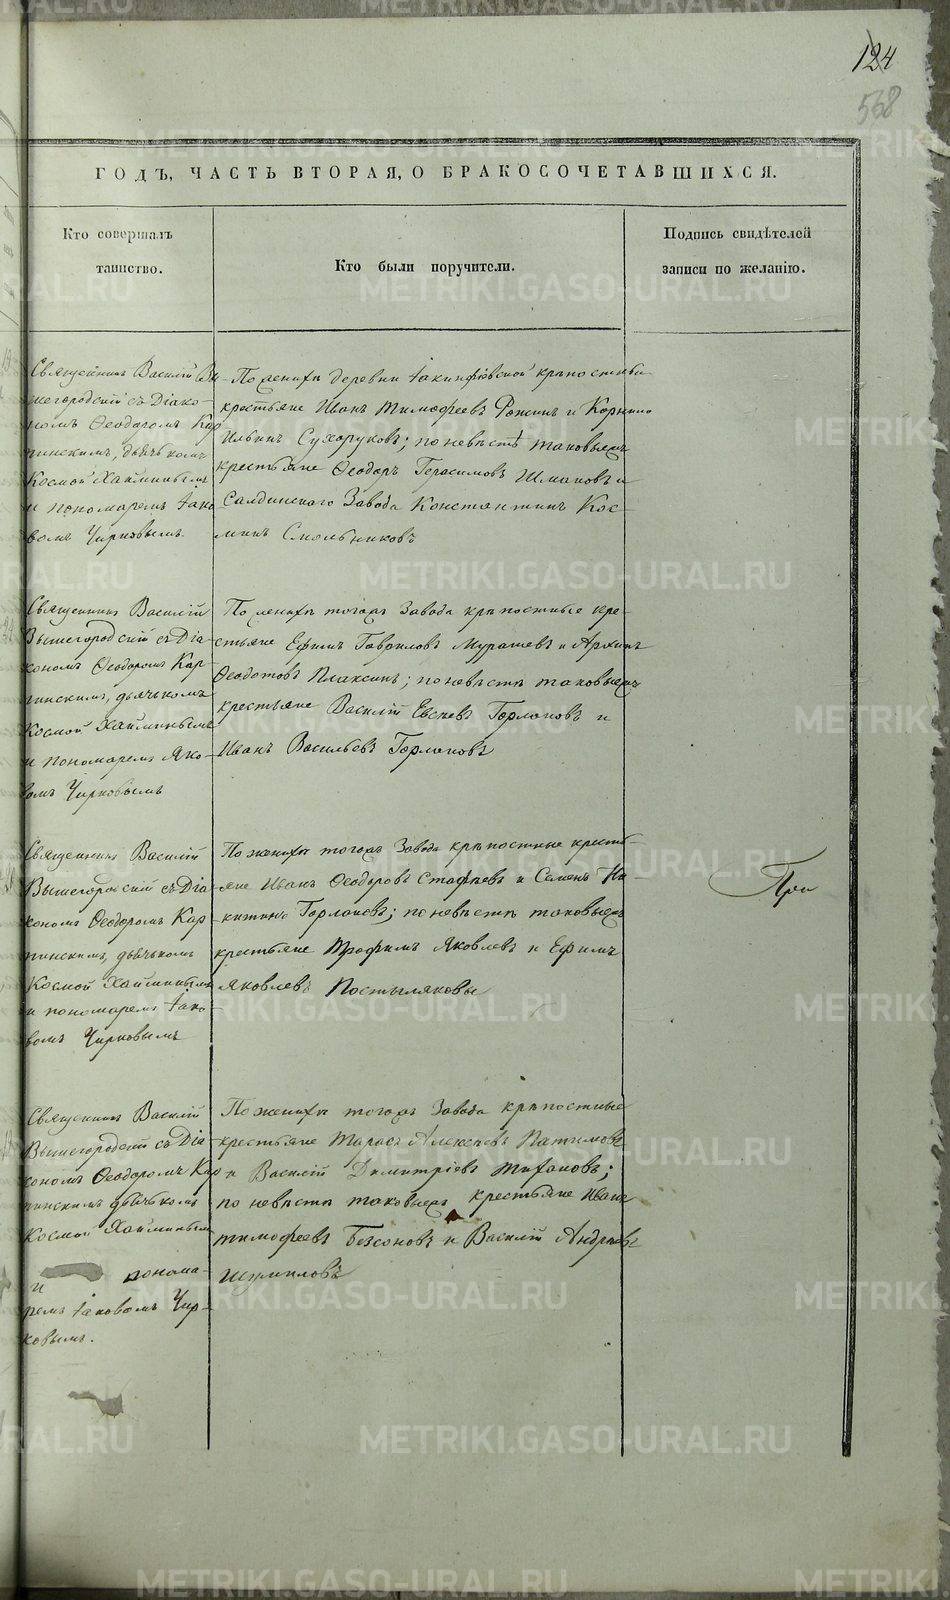 124
568
ГОДЪ, ЧАСТЬ ВТОРАЯ, О БРАКОСОЧЕТАВШИХСЯ.
Кто совершалъ
таинство.
Кто были поручители.
Подпись свидѣтелей
записи по желанію.
Священникъ Василій Вы-
шегородскій съ Діако-
номъ Ѳеодоромъ Кар
пинскимъ, дьячькомъ
Космой Хайминымъ
и пономаремъ Іако
вомъ Чирковымъ.
По женихѣ деревни Іакинфіевской крѣпостные
крестьяне Иванъ Тимофеевъ и Корнило
Ильинъ Сухоруковъ; по невѣстѣ таковыежъ
крестьяне Ѳеодоръ Герасимовъ Шмаковъ и
Салдинскаго Завода Константинъ Кос-
минъ Смольниковъ
Священникъ Василій
Вышегородскій съ Діа-
кономъ Ѳеодоромъ Кар-
пинскимъ, дьячькомъ
Космой Хайминымъ
и пономаремъ Яко-
вомъ Чирковымъ
По женихѣ тогожъ Завода крѣпостные кре-
стьяне Ефимъ Гавриловъ Мурашевъ и Архипъ
Ѳедотовъ Плаксинъ; по невѣстѣ таковыежъ
крестьяне Василій Евсеевъ Горлановъ и
Иванъ Васильевъ Горлановъ
Священникъ Василій
Вышегородскій съ Діа
кономъ Ѳеодоромъ Кар
пинскимъ, дьячькомъ
Космой Хайминымъ
и пономаремъ Іако-
вомъ Чирковымъ
По женихѣ тогожъ Завода крѣпостные кресть-
яне Иванъ Ѳеодоровъ Стафѣевъ и Семенъ Ни-
китинъ Горлановъ; по невѣстѣ таковыежъ
крестьяне Трофимъ Яковлевъ и Ефимъ
Яковлевъ Постыляковы
При
Священникъ Василій
Вышегородскій съ Діа
кономъ Ѳеодоромъ Кар
пинскимъ дьячькомъ
Космой Хайминымъ
и понома-
ремъ Іаковомъ Чир-
ковымъ.
По женихѣ тогожъ Завода крѣпостные
крестьяне Тарасъ Алексѣевъ Патимовъ
и Василій Димитріевъ Тихановъ;
по невѣстѣ таковыежъ крестьяне Иванъ
тимофеевъ Безсоновъ и Василій Андреевъ
Шумиловъ
METRIKI.GASO-URAL.RU